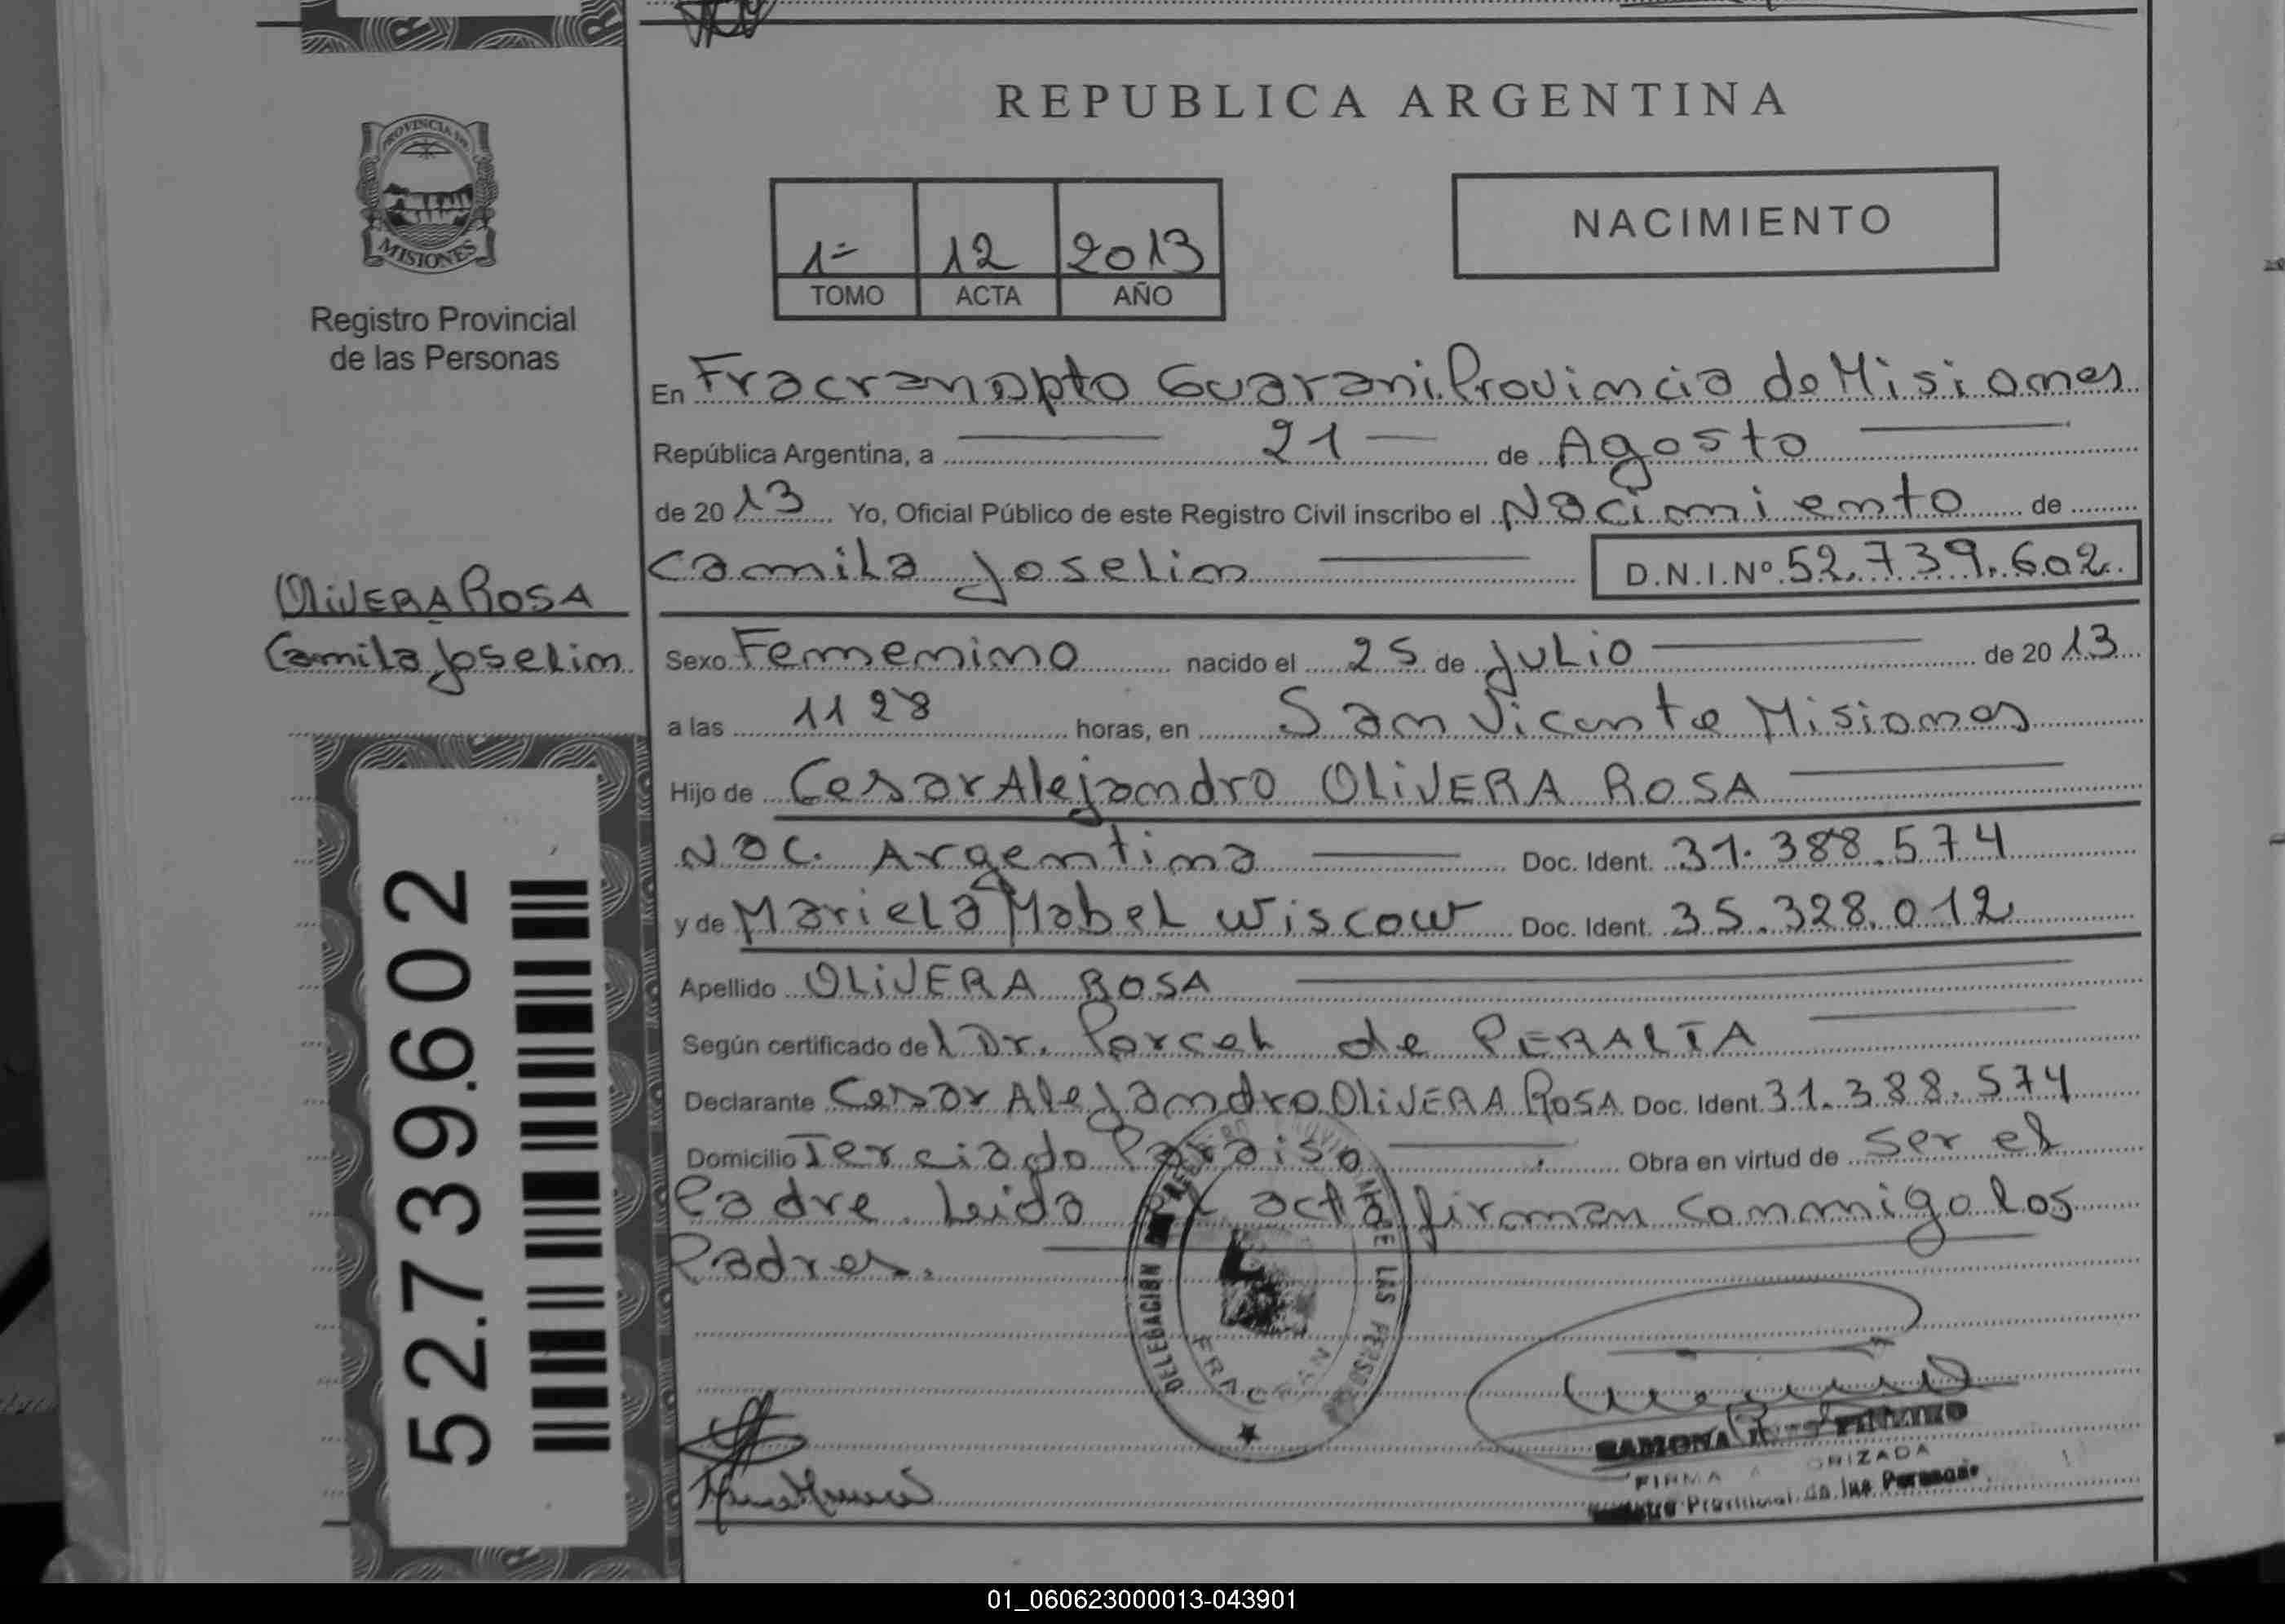 REPUBLICA ARGENTINA
PROVINCIA DE
MISIONES
Registro Provincial
de las Personas
1º 12 2013
TOMO ACTA AÑO
NACIMIENTO
En Fracran Dpto Guarani Provincia de Misiones
República Argentina, a 21 de Agosto
de 2013 Yo, Oficial Público de este Registro Civil inscribo el Nacimiento de
Camila Joselin D.N.I.Nº 52.739.602
OLIVERA ROSA
Camila Joselin
Sexo Femenino nacido el 25 de Julio de 2013
a las 11 28 horas, en San Vicente Misiones
Hijo de Cesar Alejandro OLIVERA ROSA
Nac. Argentina Doc. Ident. 31.388.574
y de Mariela Mabel Wiscow Doc. Ident. 35.328.012
Apellido OLIVERA ROSA
Según certificado del Dr. Porcel de PERALTA
Declarante Cesar Alejandro OLIVERA ROSA Doc. Ident. 31.388.574
Domicilio Terciado Paraiso Obra en virtud de Ser el
Padre. Leida el acta firman conmigo los
Padres.
52.739.602
DELEGACIÓN
DE LAS PERSO
FRACRAN
RAMONA
FIRMA A ORIZADA
Provincial de las Personas
01_060623000013-043901